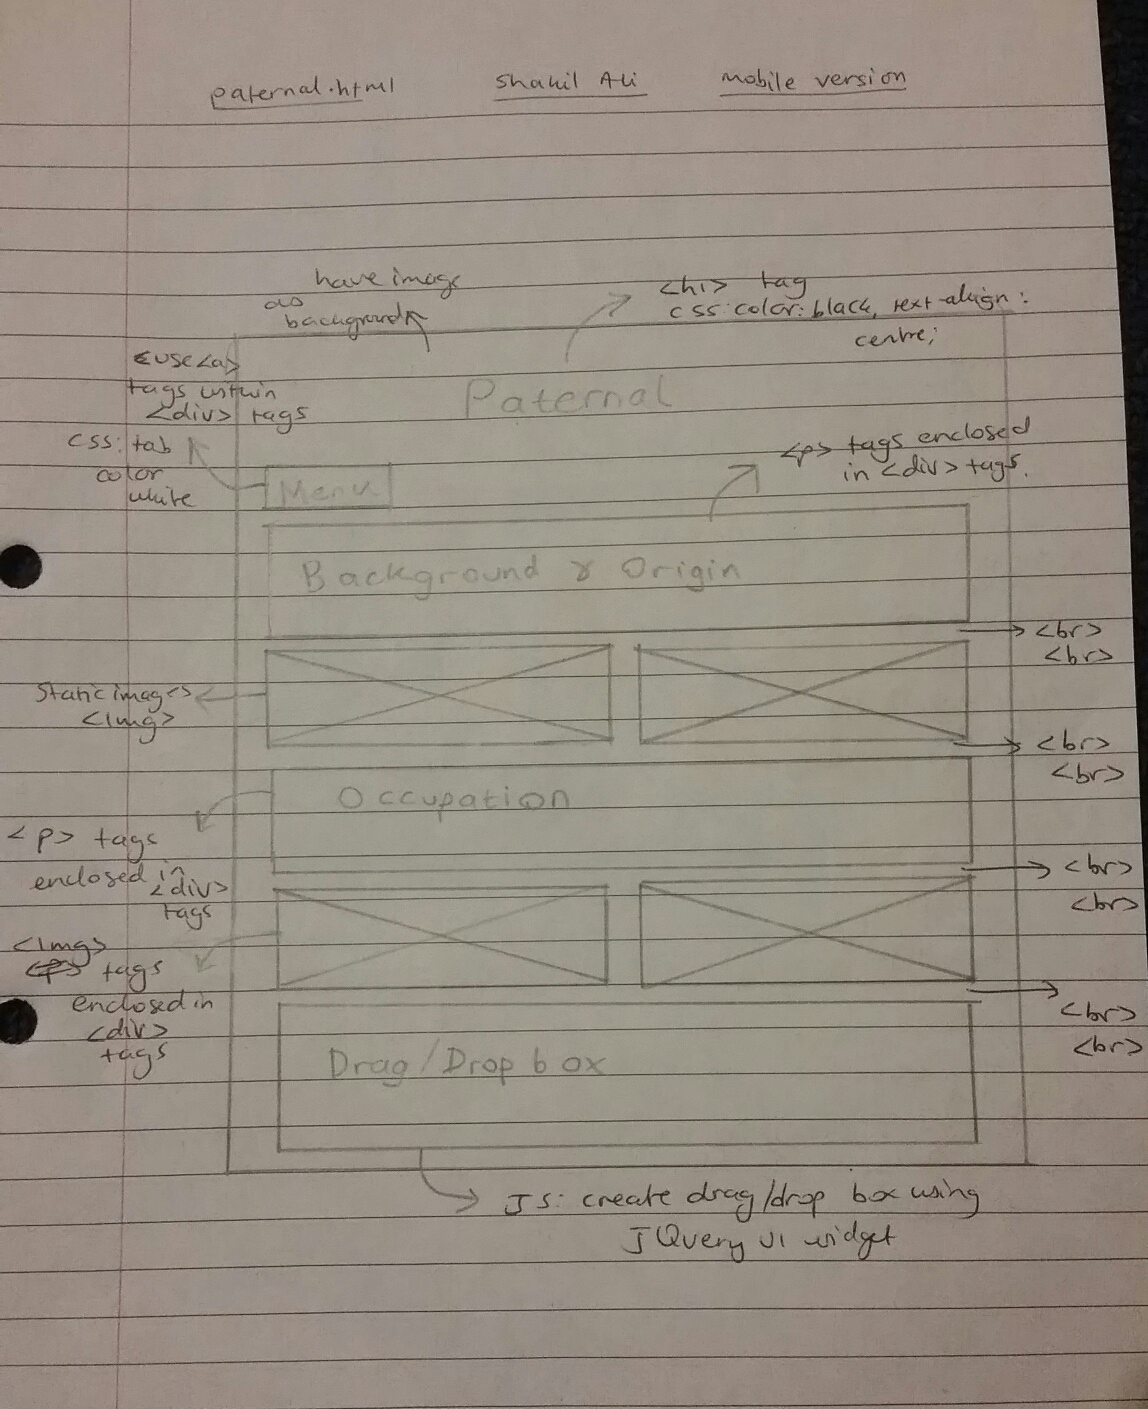 paternal.html Shakil Ali mobile version
have image
as
background
<h1> tag
css: color: black, text-align:
centre;
<use <a>
tags within
<div> tags
css: tab
color
white
Paternal
<p> tags enclosed
in <div> tags.
Menu
Background & Origin
<br>
<br>
Static images
<Img>
<br>
<br>
Occupation
<p> tags
enclosed in
<div>
tags
<br>
<br>
<Img>
<p> tags
enclosed in
<div>
tags
<br>
<br>
Drag/Drop box
JS: create drag/drop box using
JQuery UI widget